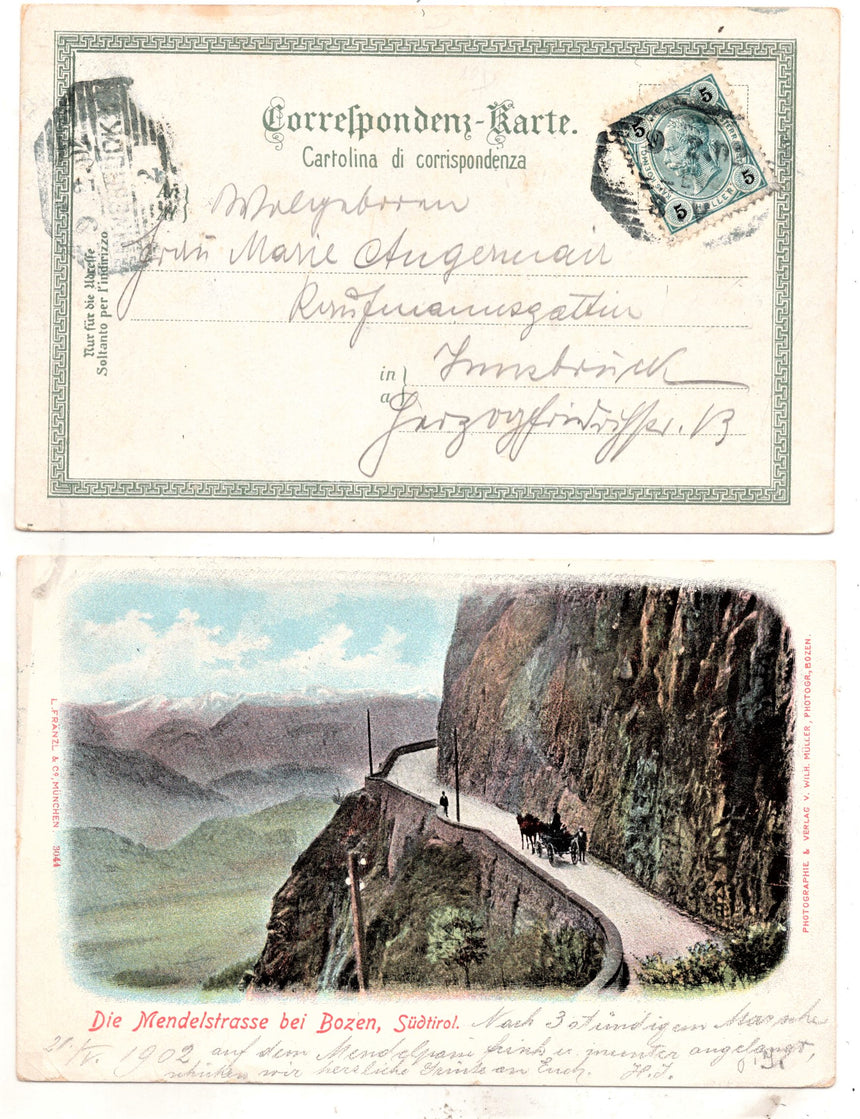 Correspondenz-Karte.
Cartolina di corrispondenza
Wolgeboren
Frau Marie Angermair
Kaufmannsgattin
in
a
Innsbruck
Herzogfriedrichstr. 13
Nur für die Adresse
Soltanto per l'indirizzo
INNSBRUCK
5 5
5 5
HELLER
L. FRÄNZL & Cº, MÜNCHEN 3044
PHOTOGRAPHIE & VERLAG V. WILH. MÜLLER, PHOTOGR., BOZEN.
Die Mendelstrasse bei Bozen, Südtirol. Nach 3 stündigem Marsche
21./V. 1902 auf dem Mendelpass frisch u. munter angelangt,
schicken wir herzliche Grüße an Euch. H.J.